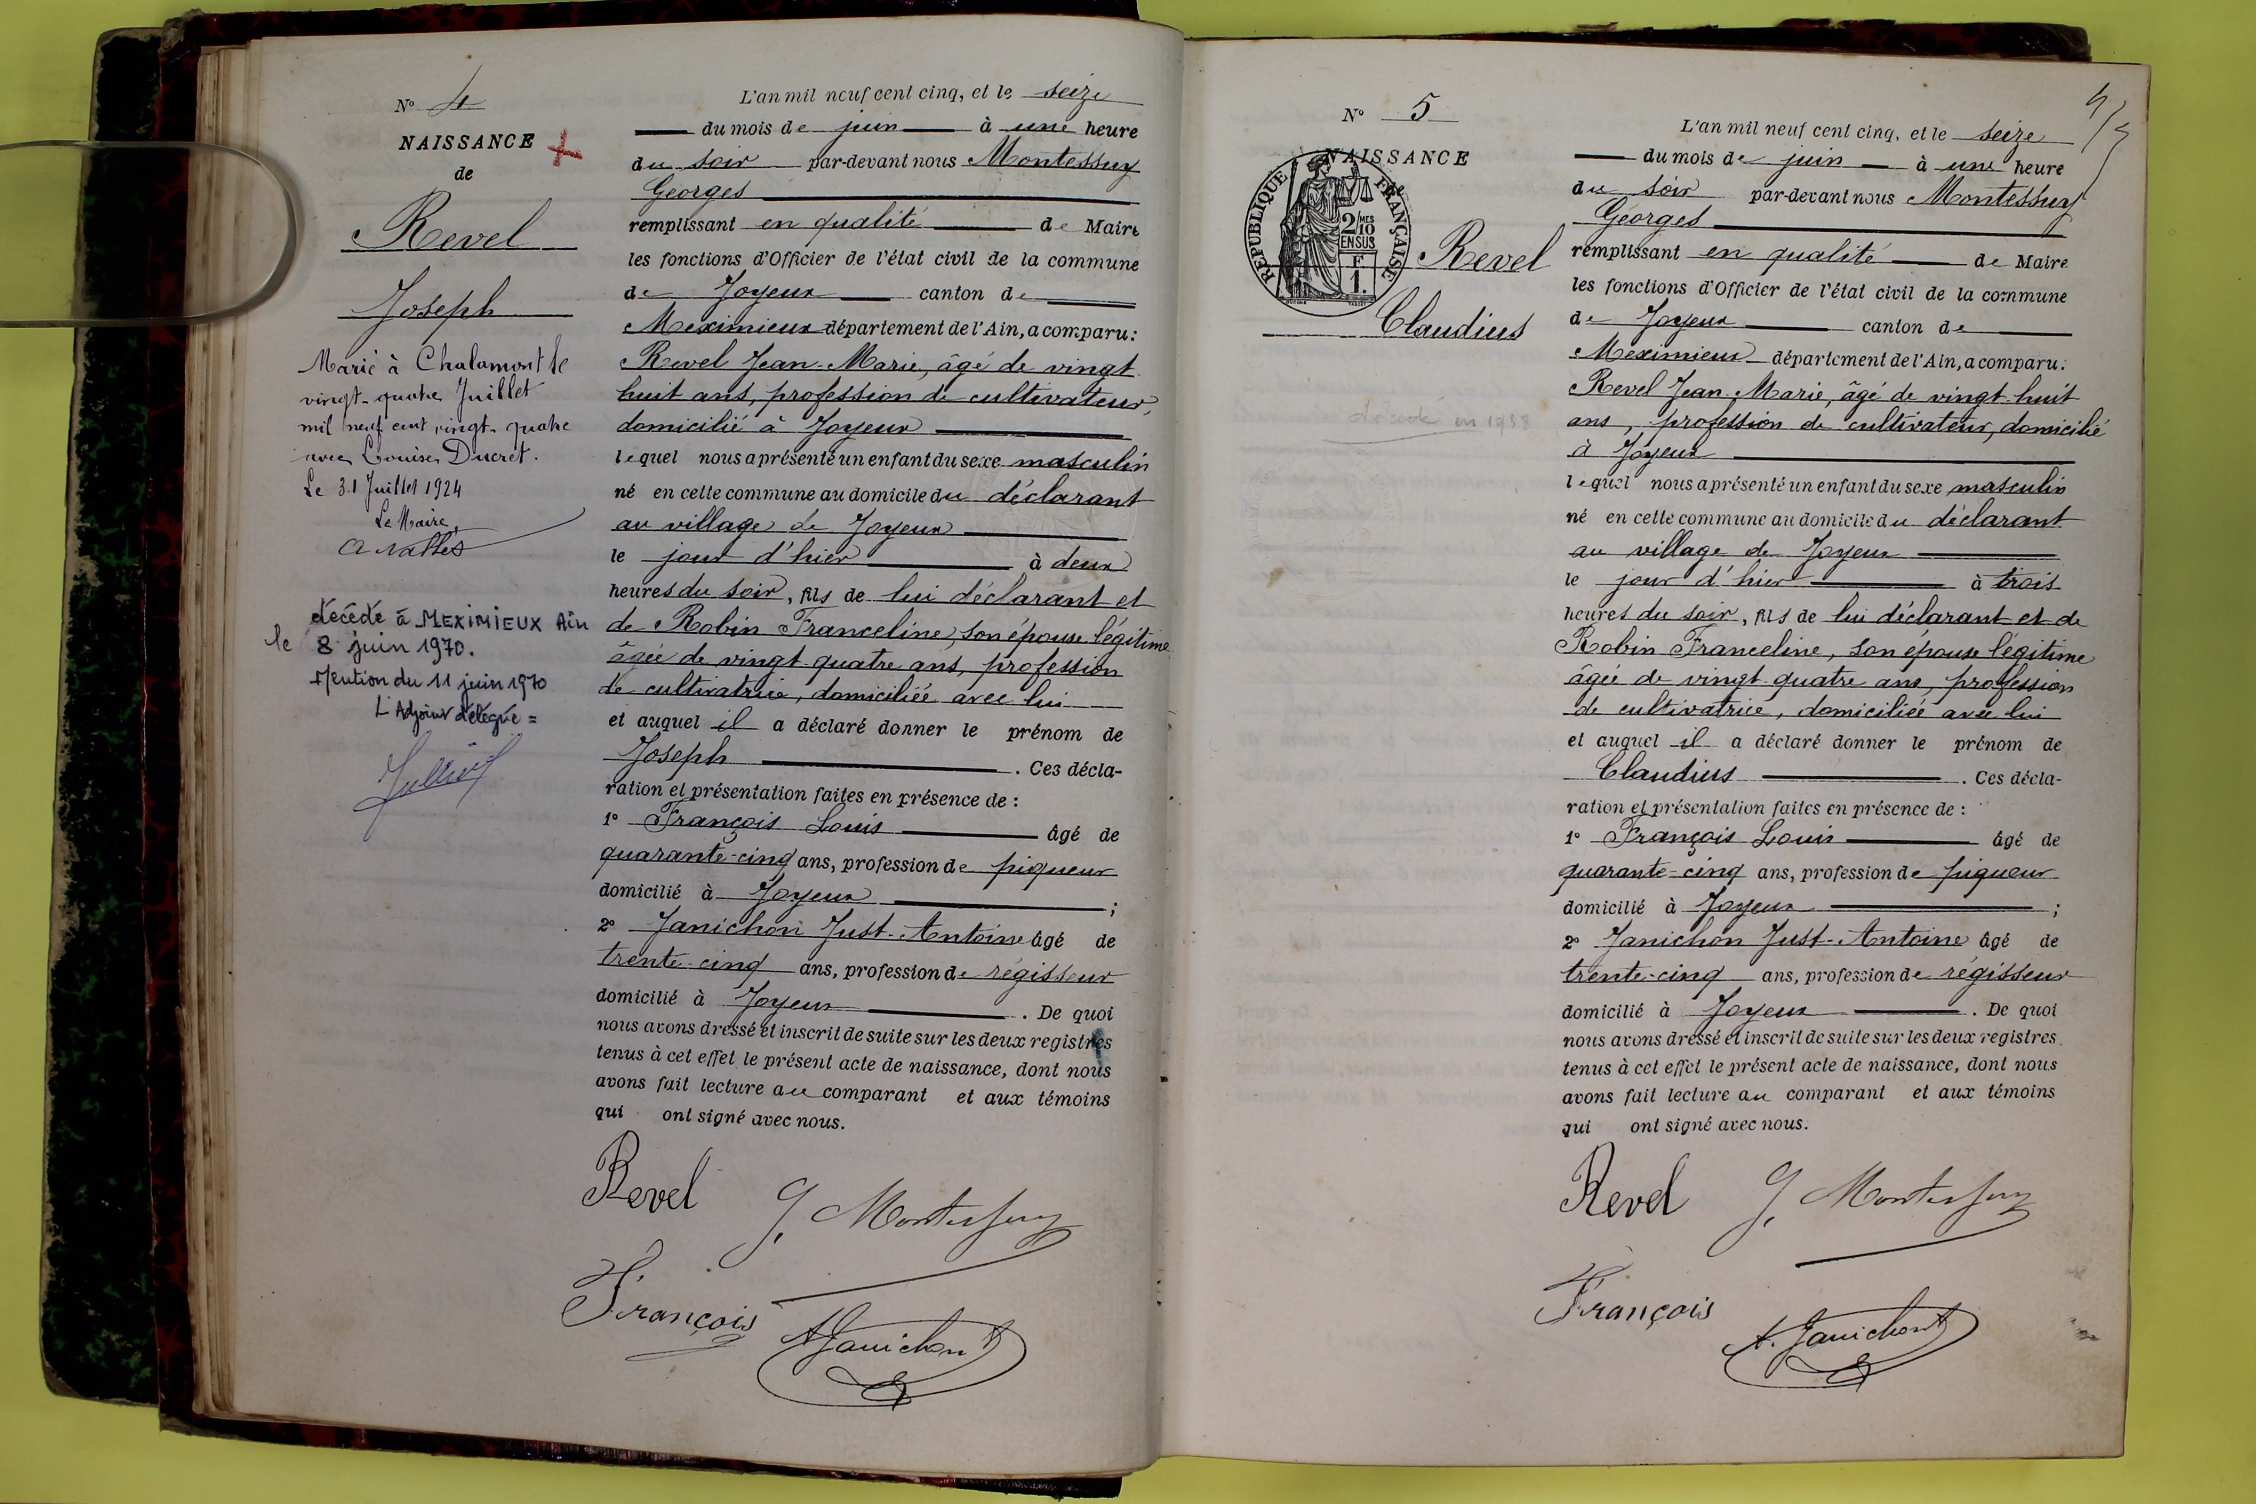 N° 4
NAISSANCE
de
Revel
Joseph
Marié à Chalamont le
vingt-quatre Juillet
mil neuf cent vingt-quatre
avec Louise Ducret.
Le 31 Juillet 1924
Le Maire,
décédé à MEXIMIEUX Ain
le 8 juin 1970.
Mention du 11 juin 1970
L'Adjoint délégué =
L'an mil neuf cent cinq, et le seize
du mois de juin à une heure
du soir par-devant nous Montessuy
Georges
remplissant en qualité de Maire
les fonctions d'Officier de l'état civil de la commune
de Joyeux canton de
Meximieux département de l'Ain, a comparu:
Revel Jean-Marie, âgé de vingt
huit ans, profession de cultivateur,
domicilié à Joyeux
lequel nous a présenté un enfant du sexe masculin
né en cette commune au domicile du déclarant
au village de Joyeux
le jour d'hier à deux
heures du soir, fils de lui déclarant et
de Robin Franceline, son épouse légitime
âgée de vingt-quatre ans, profession
de cultivatrice, domiciliée avec lui
et auquel il a déclaré donner le prénom de
Joseph . Ces décla-
ration et présentation faites en présence de :
1° François Louis âgé de
quarante-cinq ans, profession de piqueur
domicilié à Joyeux ;
2° Janichon Just-Antoine âgé de
trente-cinq ans, profession de régisseur
domicilié à Joyeux . De quoi
nous avons dressé et inscrit de suite sur les deux registres
tenus à cet effet le présent acte de naissance, dont nous
avons fait lecture au comparant et aux témoins
qui ont signé avec nous.
Revel G. Montessuy
François
A Janichon
5
N° 5
NAISSANCE
RÉPUBLIQUE FRANÇAISE
2/10 MES
EN SUS
F
1.
Revel
Claudius
décédé en 1988
L'an mil neuf cent cinq, et le seize
du mois de juin à une heure
du soir par-devant nous Montessuy
Georges
remplissant en qualité de Maire
les fonctions d'Officier de l'état civil de la commune
de Joyeux canton de
Meximieux département de l'Ain, a comparu:
Revel Jean-Marie, âgé de vingt-huit
ans, profession de cultivateur, domicilié
à Joyeux
lequel nous a présenté un enfant du sexe masculin
né en cette commune au domicile du déclarant
au village de Joyeux
le jour d'hier à trois
heures du soir, fils de lui déclarant et de
Robin Franceline, son épouse légitime
âgée de vingt-quatre ans, profession
de cultivatrice, domiciliée avec lui
et auquel il a déclaré donner le prénom de
Claudius . Ces décla-
ration et présentation faites en présence de :
1° François Louis âgé de
quarante-cinq ans, profession de piqueur
domicilié à Joyeux ;
2° Janichon Just-Antoine âgé de
trente-cinq ans, profession de régisseur
domicilié à Joyeux . De quoi
nous avons dressé et inscrit de suite sur les deux registres
tenus à cet effet le présent acte de naissance, dont nous
avons fait lecture au comparant et aux témoins
qui ont signé avec nous.
Revel G. Montessuy
François
A. Janichon